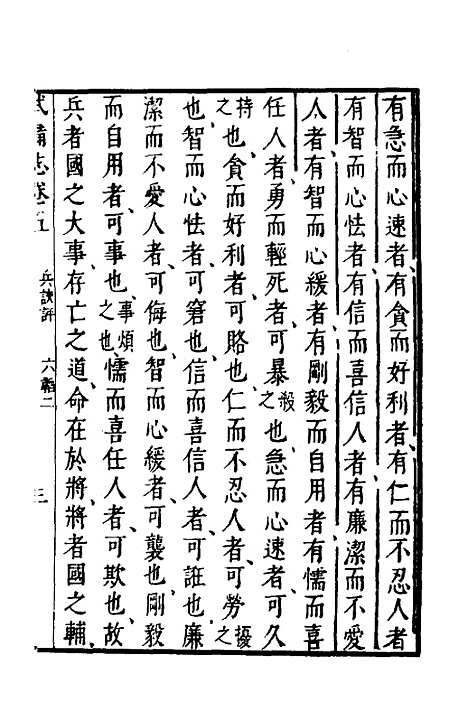 有急而心速者有貪而好利者有仁而不忍人者
有智而心怯者有信而喜信人者有廉潔而不愛
人者有智而心緩者有剛毅而自用者有懦而喜
任人者勇而輕死者可暴殺之也急而心速者可久
持也貪而好利者可賂也仁而不忍人者可勞擾之
也智而心怯者可窘也信而喜信人者可誑也廉
潔而不愛人者可侮也智而心緩者可襲也剛毅
而自用者可事事煩之也也懦而喜任人者可欺也故
兵者國之大事存亡之道命在於將將者國之輔
武備志卷五 兵訣評 六韜二 三